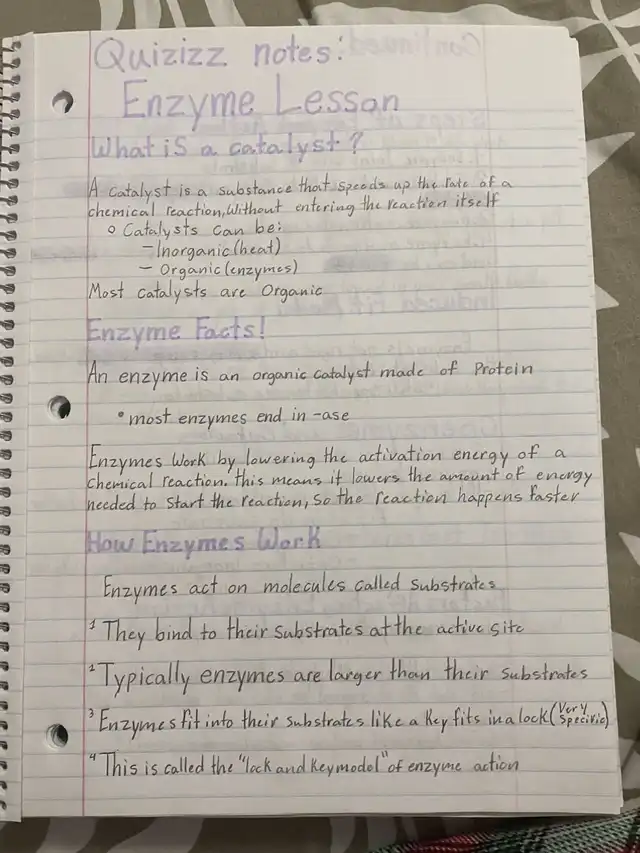 Quizizz notes:
Enzyme Lesson
What is a catalyst?
A catalyst is a substance that speeds up the rate of a
chemical reaction, without entering the reaction itself
Catalysts can be:
- Inorganic (heat)
- Organic (enzymes)
Most catalysts are Organic
Enzyme Facts!
An enzyme is an organic catalyst made of Protein
• most enzymes end in -ase
Enzymes work by lowering the activation energy of a
chemical reaction. this means it lowers the amount of energy
needed to start the reaction, so the reaction happens faster
How Enzymes Work
Enzymes act on molecules called substrates
1 They bind to their substrates at the active site
2 Typically enzymes are larger than their substrates
3 Enzymes fit into their substrates like a key fits in a lock (very specific)
4 This is called the "lock and key model" of enzyme action